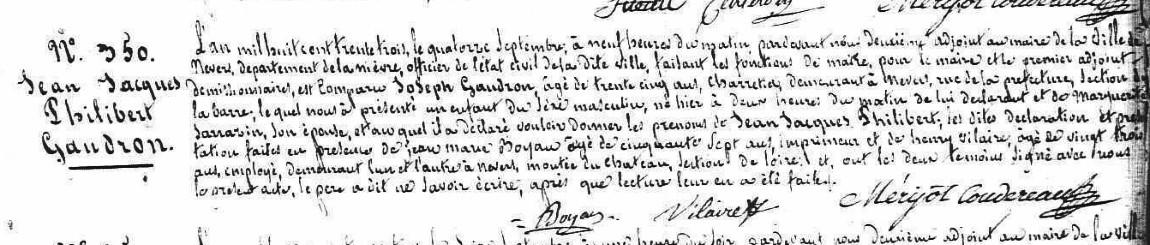 Mérijot Coudereau
N.o 350.
Jean Jacques
Philibert
Gaudron.
L'an mil huit cent trente trois, le quatorze Septembre, à neuf heures du matin, pardevant nous deuxième adjoint au maire de la ville de
Nevers, département de la nièvre, officier de l'état civil de la dite ville, faisant les fonctions de maire, pour le maire et le premier adjoint
démissionnaires, est Comparu Joseph Gaudron, âgé de trente cinq ans, Charretier, demeurant à Nevers, rue de la prefecture, Section de
la barre, lequel nous a présenté un enfant du Séxe masculin, né hier à deux heures du matin de lui déclarant et de Marguerite
Sarrazin, Son épouse, et auquel il a déclaré vouloir donner les prenoms de Jean Jacques Philibert, les dites déclaration et présen
tation faites en présence de Jean marie Boyau âgé de cinquante Sept ans, imprimeur et de henry Vilaire, âgé de vingt trois
ans, employé, demeurant l'un et l'autre à nevers, montée du Chateau, Section de loire; et, ont les deux témoins Signé avec nous
le présent acte, le pere a dit ne Savoir écrire, après que lecture leur en a été faite.
Boyau Vilaire Mérijot Coudereau
pardevant nous deuxième adjoint au maire de la ville